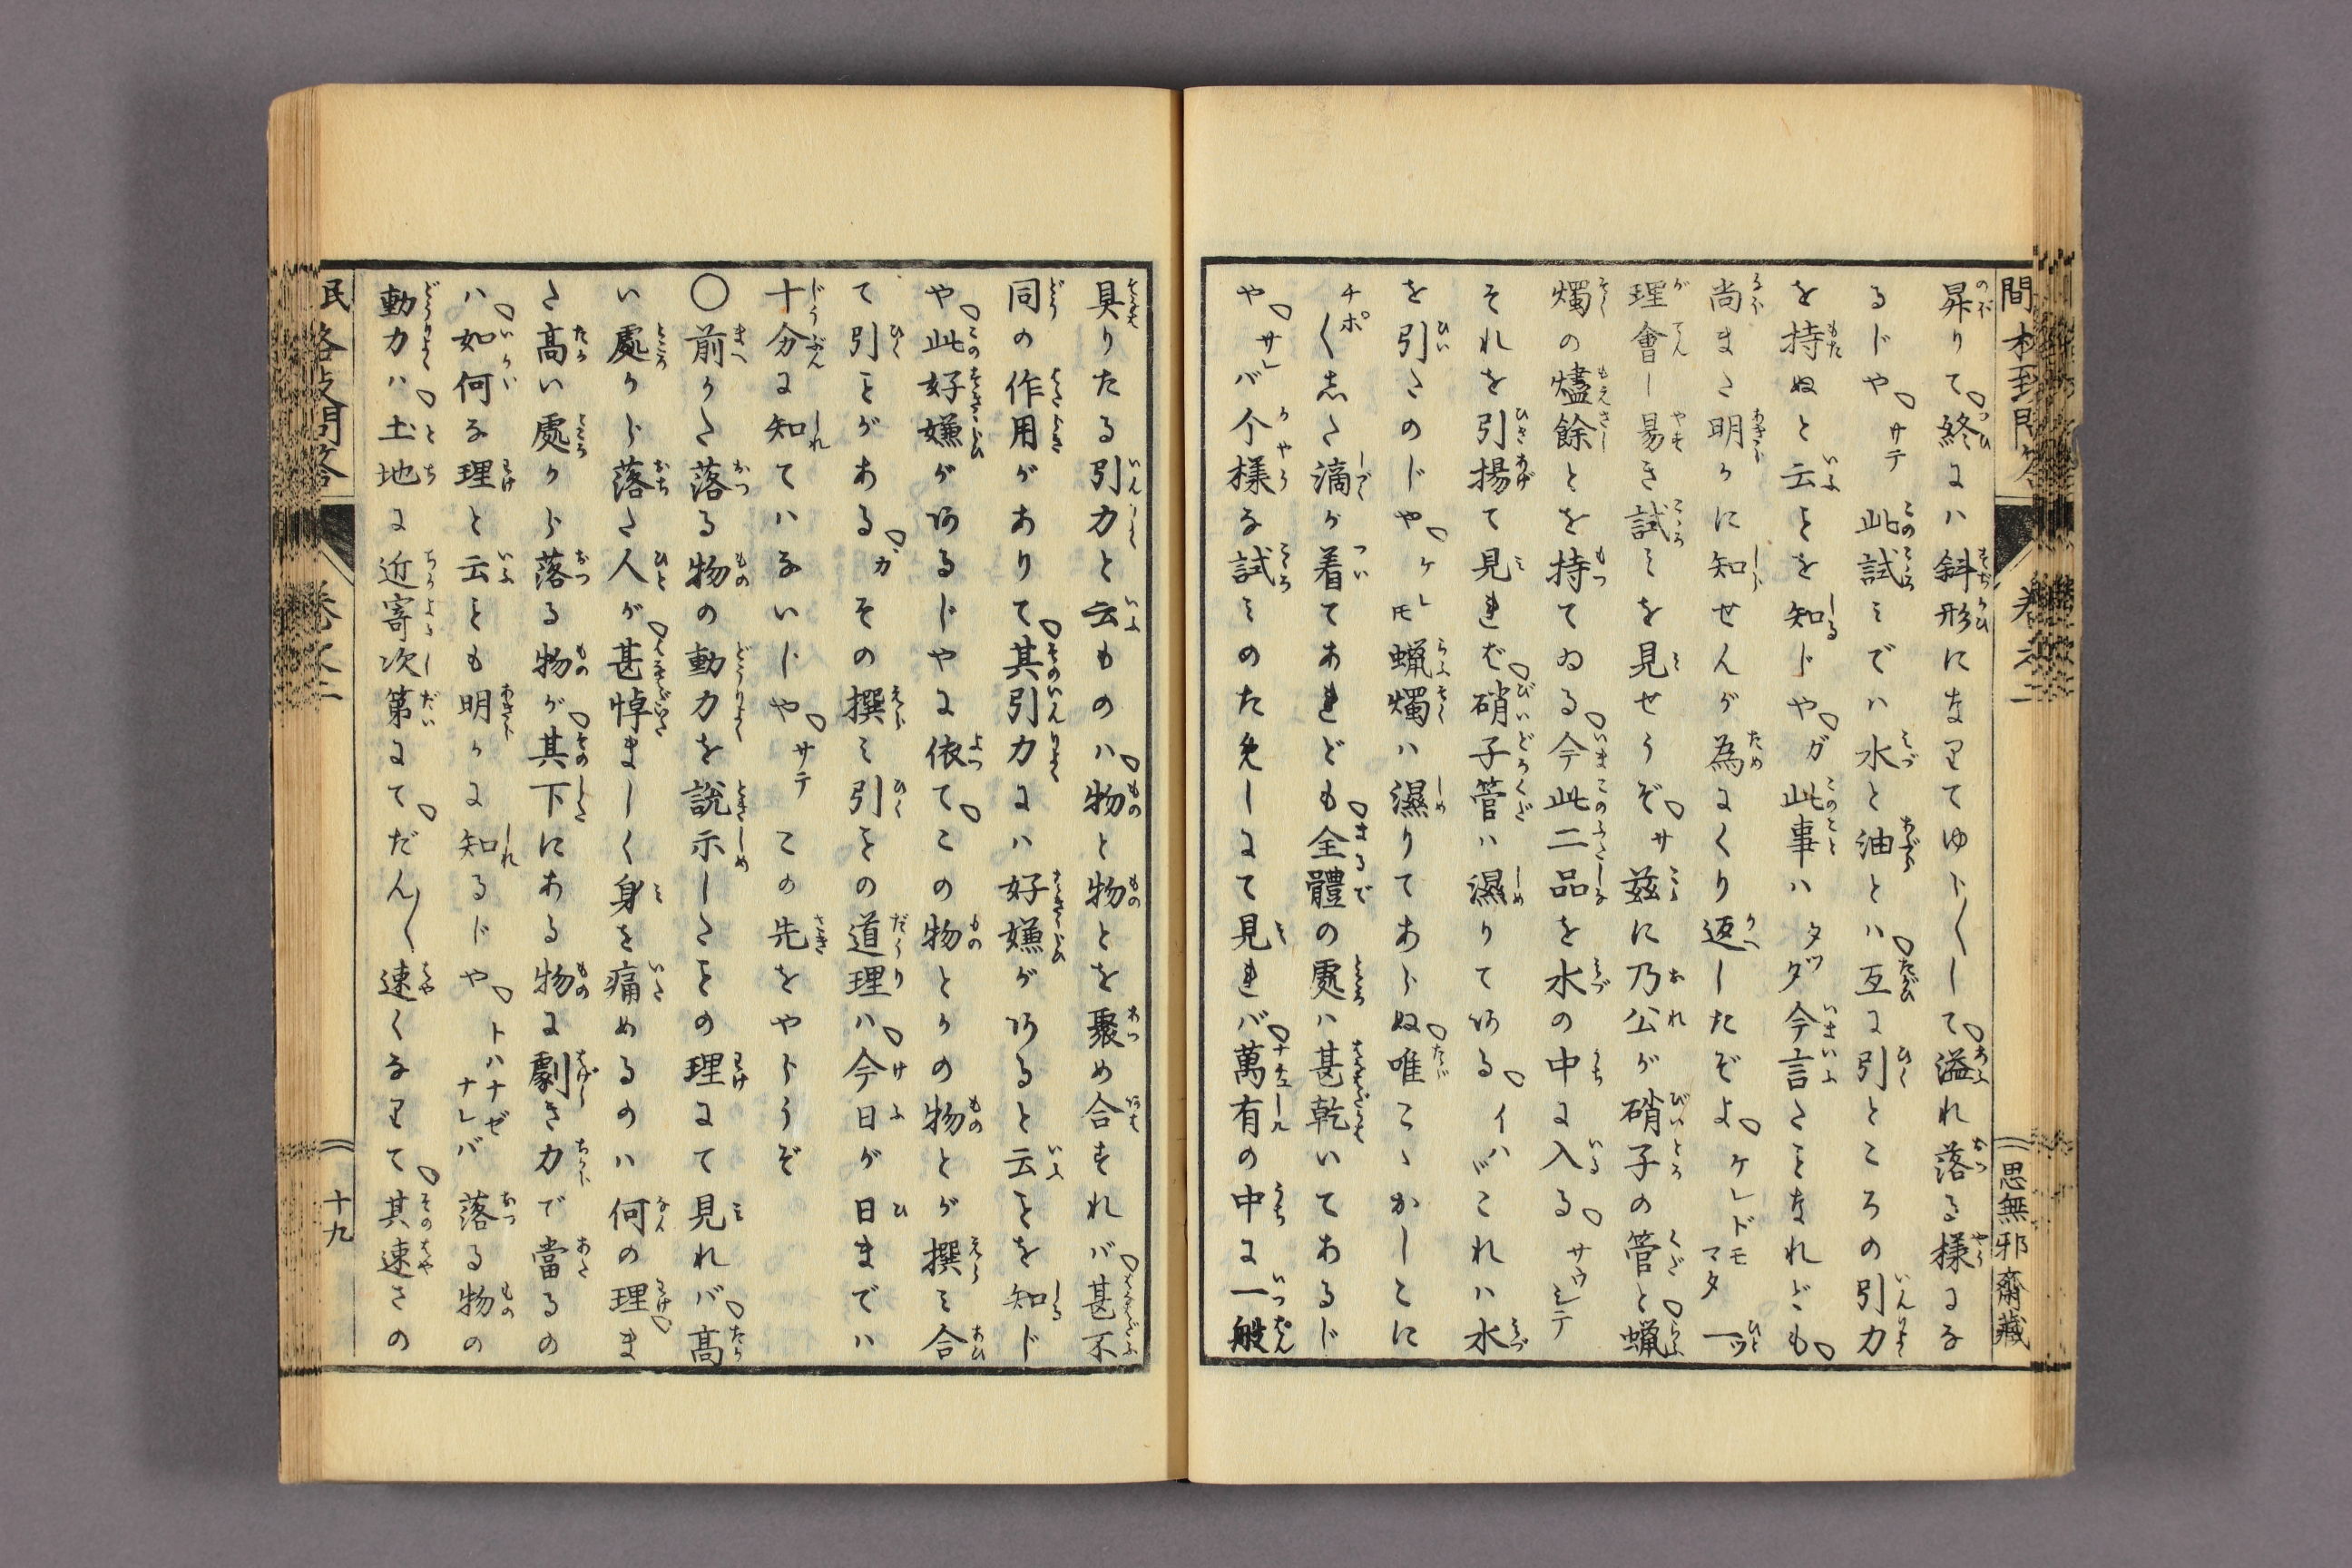 昇りて終にハ斜形になりてゆら〱して溢れ落る様にな
るじやサテ此試ミでハ水と油とハ互に引ところの引力
を持ぬと云ことを知じやガ此事ハタツダ今言たことなれども
尚また明かに知せんが為にくり返したぞよケレドモマタ一ツ
理會し易き試ミを見せうぞサ茲に乃公が硝子の管と蝋
燭の燼餘とを持てゐる今此二品を水の中に入るサウシテ
それを引揚て見れば硝子管ハ濕りてゐるイハゞこれハ水
を引たのじやケレ𪜈蝋燭ハ濕りてあらぬ唯こゝかしこに
チポ〱した滴が着てあれども全體の處ハ甚乾いてあるじ
やサレバ个様な試ミのため免しにて見れバ萬有の中に一般
具りたる引力と云ものハ物と物とを聚め合すれバ甚不
同の作用がありて其引力にハ好嫌が有ると云ことを知じ
や此好嫌が有るじやに依てこの物とかの物とが撰ミ合
て引ことがあるガその撰ミ引ことの道理ハ今日が日までハ
十分に知てハないじやサテこの先をやらうぞ
〇前かた落る物の動力を説示したことの理にて見れバ高
い處から落た人が甚悼ましく身を痛めるのハ何の理ま
た高い處から落る物が其下にある物に劇き力で當るの
ハ如何な理と云ことも明かに知るじやトハナゼナレバ落る物の
動力ハ土地に近寄次第にてだん〱速くなりて其速さの
思無邪齋藏
十九